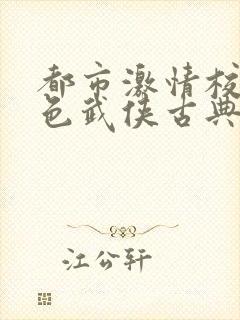 都市激情校
色武侠古典
江公轩